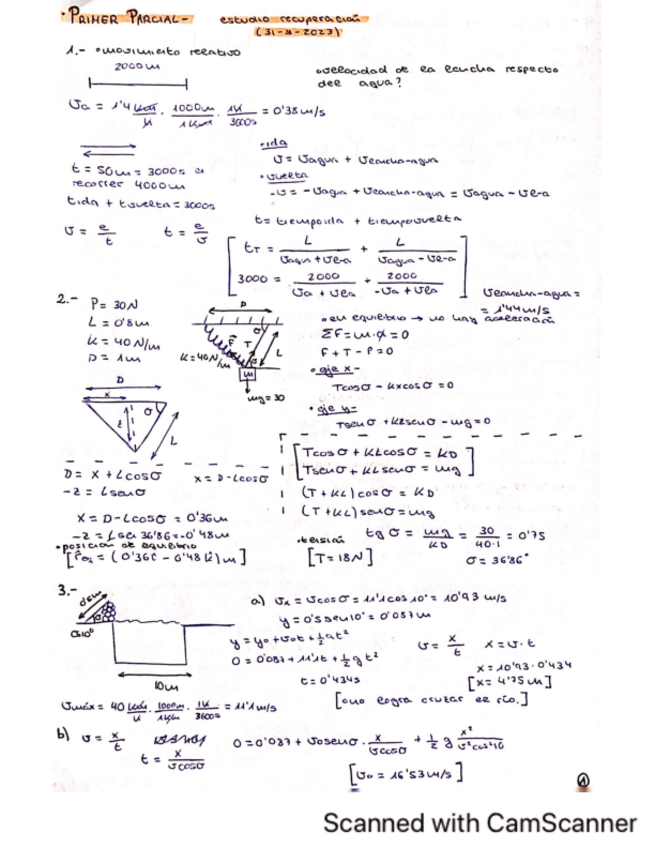 · PRIMER PARCIAL - estudio recuperación
(31-8-2023)
1.- · movimiento relativo
2000m
· velocidad de la lancha respecto
del agua?
Va = 1'4 km/h · 1000m/1km · 1h/3600s = 0'38 m/s
· ida
V = Vagua + Vlancha-agua
t = 50m = 3000s
recorrer 4000m
· vuelta
-V = -Vagua + Vlancha-agua = Vagua - Vl-a
tida + tvuelta = 3000s
t = tiempoida + tiempovuelta
V = e/t t = e/V
tT = L/(Vagua + Vl-a) + L/(Vagua - Vl-a)
3000 = 2000/(Va + Vla) + 2000/(-Va + Vla)
Vlancha-agua =
= 1'44 m/s
2.- P = 30N
L = 0'8m
K = 40 N/m
D = 1m
D
F T L
K = 40 N/m
m
mg = 30
· en equilibrio → no hay aceleración
ΣF = m·a = 0
F + T - P = 0
· eje x -
Tcosσ - kxcosσ = 0
· eje y =
Tsenσ + kzsenσ - mg = 0
D
x
z
σ
L
Tcosσ + KLcosσ = KD
Tsenσ + KLsenσ = mg
D = x + Lcosσ x = D - Lcosσ
-z = Lsenσ
(T + KL) cosσ = KD
(T + KL) senσ = mg
x = D - Lcosσ = 0'36m
-z = Lsen 36'86 = -0'48m
· posición de equilibrio
· tensión
[T = 18N]
tgσ = mg/KD = 30/(40·1) = 0'75
σ = 36'86°
3.-
10m
a) Vx = Vcosσ = 11'1cos10° = 10'93 m/s
y = 0'5sen10° = 0'087m
y = y0 + v0t + ½at²
0 = 0'087 + 11'1t + ½gt²
t = 0'434s
V = x/t x = v·t
x = 10'93·0'434
[x = 4'75m]
[no logra cruzar el río.]
Vmáx = 40 km/h · 1000m/1km · 1h/3600s = 11'1 m/s
b) V = x/t
t = x/(Vcosσ)
0 = 0'087 + V0senσ · x/(Vcosσ) + ½ g x²/(V²cos²10)
[V0 = 16'53 m/s]
1
Scanned with CamScanner